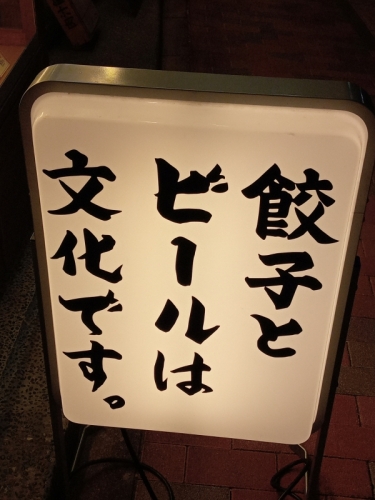 餃子と
ビールは
文化です。